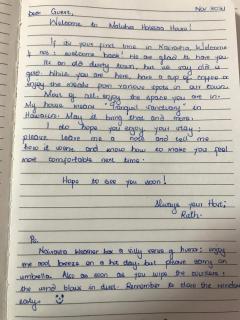 Dear Guest,
Nov 2021
Welcome to Maluhia Hale House!
If its your first time in Kaivaira, Welcome
if not; welcome back! We are glad to have you.
Its an old dusty town, but we say old is
gold. While you are here have a cup of coffee or
enjoy the meals from various spots in our town.
Most of all; enjoy the space you are in.
My house means "Tranquil sanctuary" in
Hawaiian. May it bring that and more.
I do hope you enjoy your stay;
please leave me a note and tell me
how it went and know how to make you feel
most comfortable next time.
Hope to see you soon!
Always your Host;
Ruth.
Ps.
weather has a silly sense of humor; enjoy
the cool breeze on a hot day but please carry an
umbrella. Also as soon as you wipe the surfaces;
the wind blows in dust. Remember to close the windows
early.